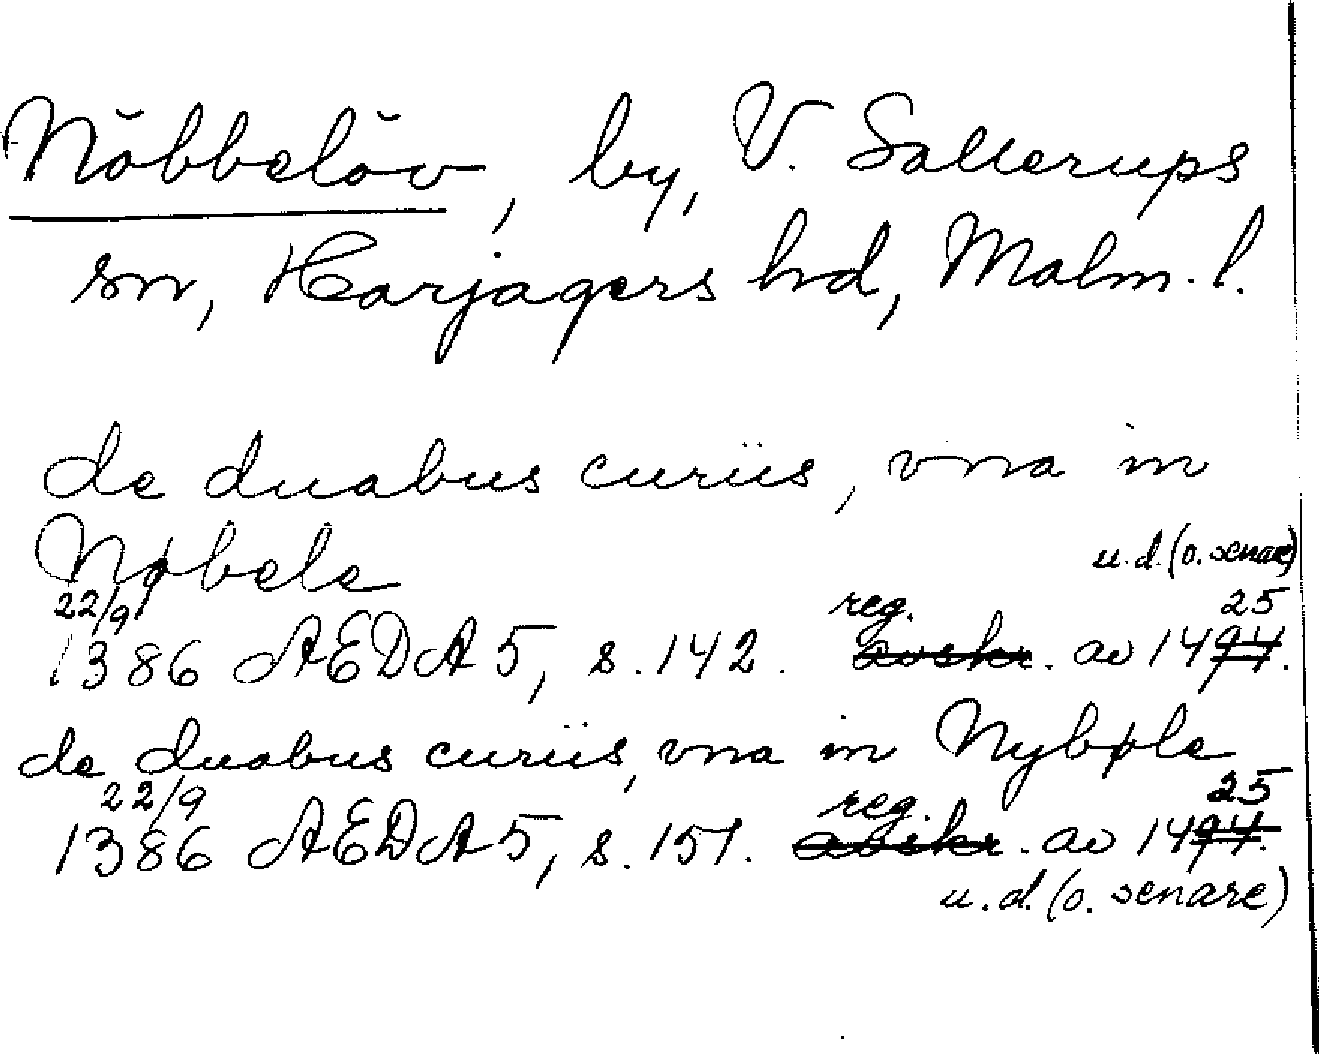 Nöbbelöv, by, V. Sallerups
sn, Harjagers hd, Malm. l.
de duabus curiis, vna in
Nøbele
u.d. (o. senare)
22/9 reg. 25
1386 AEDA 5, s. 142. avskr. av 1494.
de duabus curiis, vna in Nybøle
22/9 reg. 25
1386 AEDA 5, s. 151. avskr. av 1494.
u.d. (o. senare)